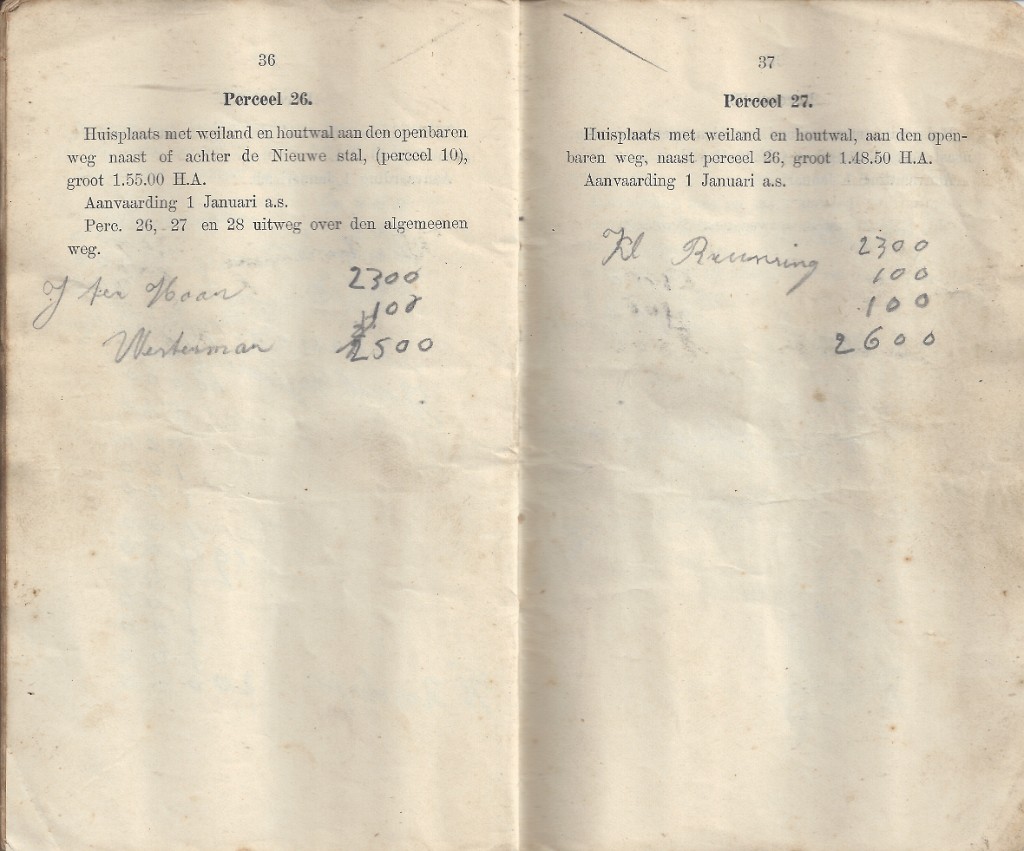 36
Perceel 26.
Huisplaats met weiland en houtwal aan den openbaren
weg naast of achter de Nieuwe stal, (perceel 10),
groot 1.55.00 H.A.
Aanvaarding 1 Januari a.s.
Perc. 26, 27 en 28 uitweg over den algemeenen
weg.
J ter Haar 2300
100
Westerman 2500
37
Perceel 27.
Huisplaats met weiland en houtwal, aan den open-
baren weg, naast perceel 26, groot 1.48.50 H.A.
Aanvaarding 1 Januari a.s.
Kl 2300
100
100
2600